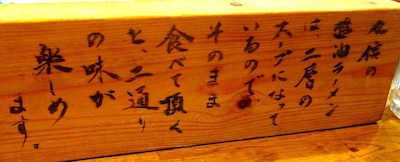 丸信の
醤油ラーメン
は二層の
スープになって
いるので、
そのまま
食べて頂く
と、二通り
の味が
楽しめ
ます。